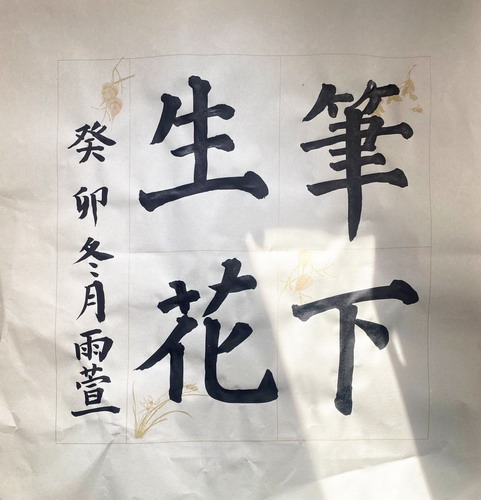 筆下
生花
癸卯冬月雨萱